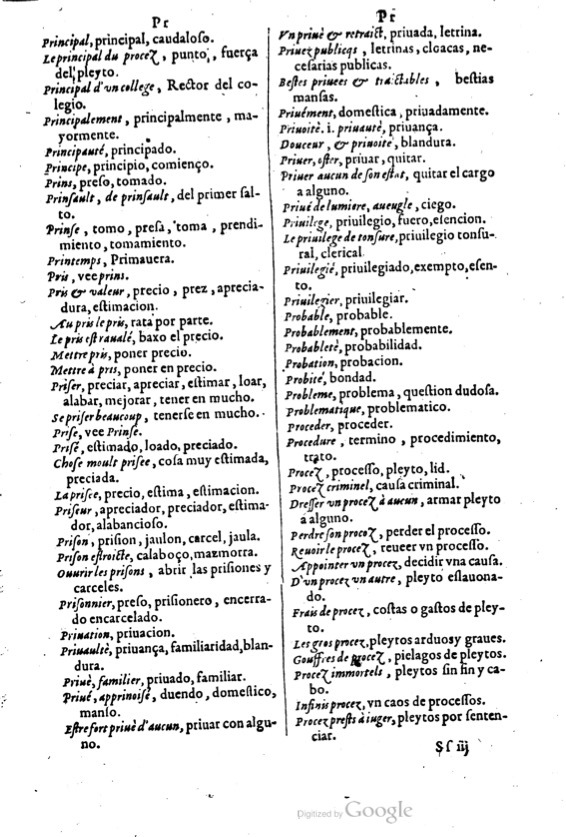 Pr
Principal, principal, caudaloſo.
Le principal du procez, punto, fuerça
del pleyto.
Principal d'vn college, Rector del co-
legio.
Principalement, principalmente, ma-
yormente.
Principauté, principado.
Principe, principio, comienço.
Prins, preſo, tomado.
Prinſault, de prinſault, del primer ſal-
to.
Prinſe, tomo, preſa, toma, prendi-
miento, tomamiento.
Printemps, Primauera.
Pris, vee prins.
Pris & valeur, precio, prez, aprecia-
dura, eſtimacion.
Au pris le pris, rata por parte.
Le pris eſt raualé, baxo el precio.
Mettre pris, poner precio.
Mettre à pris, poner en precio.
Priſer, preciar, apreciar, eſtimar, loar,
alabar, mejorar, tener en mucho.
Se priſer beaucoup, tenerſe en mucho.
Priſe, vee Prinſe.
Priſé, eſtimado, loado, preciado.
Choſe moult priſee, coſa muy eſtimada,
preciada.
La priſee, precio, eſtima, eſtimacion.
Priſeur, apreciador, preciador, eſtima-
dor, alabancioſo.
Priſon, priſion, jaulon, carcel, jaula.
Priſon eſtroicte, calaboço, mazmorra.
Ouurir les priſons, abrir las priſiones y
carceles.
Priſonnier, preſo, priſionero, encerra-
do encarcelado.
Priuation, priuacion.
Priuaultè, priuança, familiaridad, blan-
dura.
Priuè, familier, priuado, familiar.
Priué, apprinoiſé, duendo, domeſtico,
manſo.
Eſtre fort priuè d'aucun, priuar con algu-
no.
Pr
Vn priuè & retraict, priuada, letrina.
Priuez publicqs, letrinas, cloacas, ne-
ceſarias publicas.
Beſtes priuees & traictables, beſtias
manſas.
Priuément, domeſtica, priuadamente.
Priuoité. i. priuauté, priuança.
Douceur, & priuoité, blandura.
Priuer, oſter, priuar, quitar.
Priuer aucun de ſon eſtat, quitar el cargo
a alguno.
Priué de lumiere, aueugle, ciego.
Priuilege, priuilegio, fuero, eſencion.
Le priuilege de tonſure, priuilegio tonſu-
ral, clerical.
Priuilegié, priuilegiado, exempto, eſen-
to.
Priuilegier, priuilegiar.
Probable, probable.
Probablement, probablemente.
Probabletè, probabilidad.
Probation, probacion.
Probité, bondad.
Probleme, problema, queſtion dudoſa.
Problematique, problematico.
Proceder, proceder.
Procedure, termino, procedimiento,
trato.
Procez, proceſſo, pleyto, lid.
Procez criminel, cauſa criminal.
Dreſſer vn procez à aucun, armar pleyto
à alguno.
Perdre ſon procez, perder el proceſſo.
Reuoir le procez, reueer vn proceſſo.
Appointer vn procez, decidir vna cauſa.
D'vn procez vn autre, pleyto eslauona-
do.
Frais de procez, coſtas o gaſtos de pley-
to.
Les gros procez, pleytos arduos y graues.
Gouffres de procez, pielagos de pleytos.
Procez immortels, pleytos ſin fin y ca-
bo.
Infinis procez, vn caos de proceſſos.
Procez preſts à iuger, pleytos por ſenten-
ciar.
Sſ iij
Digitized by Google